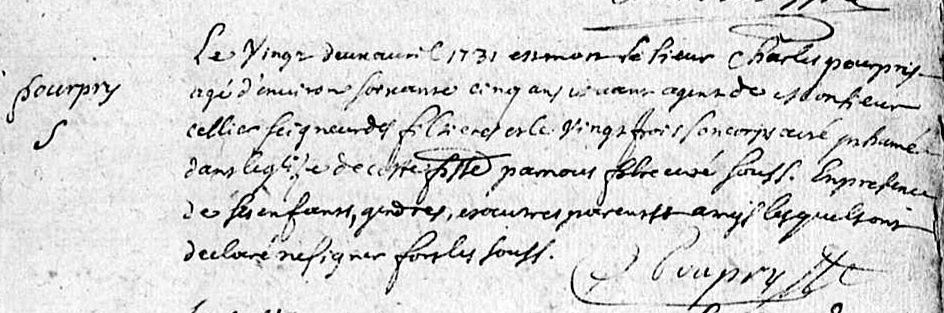 pourpry
S
Le Vingt deux avril 1731 est mort le sieur Charles pourpris
agé d'environ soixante cinq ans vivant agent de monsieur
cellier seigneur des filieres et le Vingt trois son corps a été inhumé
dans l'eglise de cette ditte par nous curé souss. En presence
de ses enfants, gendres, et autres parents et amis lesquels ont
declaré ne signer fors les souss.
Poupry